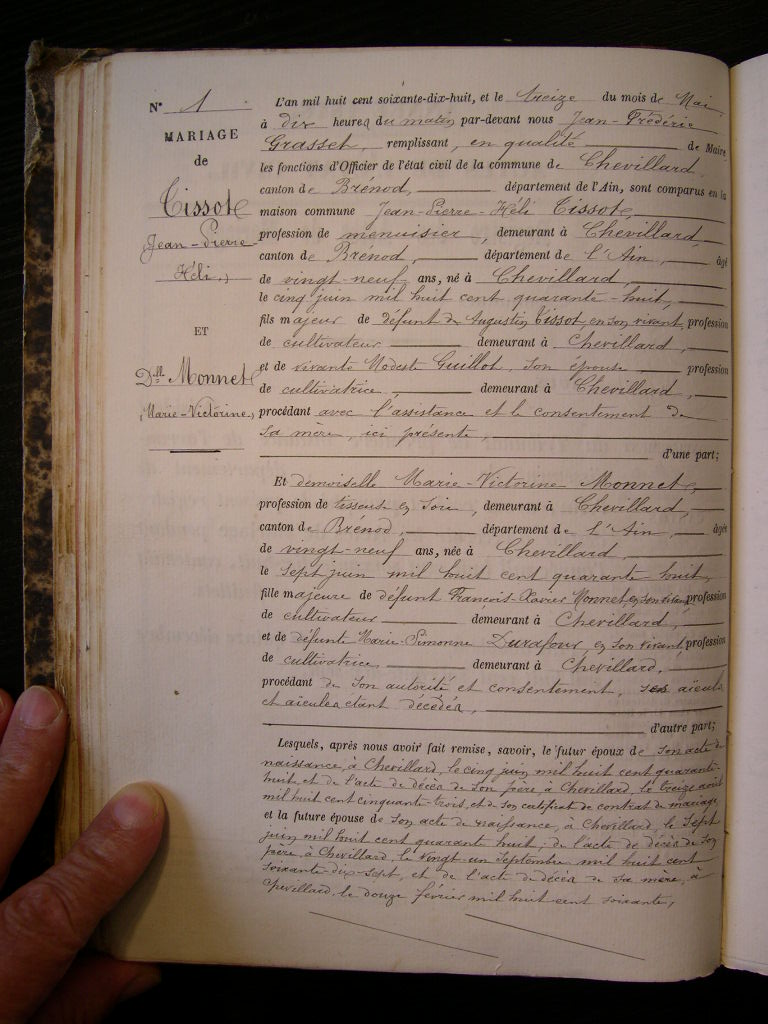 N° 1
MARIAGE
de
Tissot
Jean-Pierre
Héli,
ET
Dlle Monnet
Marie-Victorine,
L'an mil huit cent soixante-dix-huit, et le treize du mois de Mai
à dix heures du matin par-devant nous Jean-Frédéric
Grasset, remplissant, en qualité de Maire
les fonctions d'Officier de l'état civil de la commune de Chevillard
canton de Brénod, département de l'Ain, sont comparus en la
maison commune Jean-Pierre-Héli Tissot,
profession de menuisier, demeurant à Chevillard,
canton de Brénod, département de l'Ain, âgé
de vingt-neuf ans, né à Chevillard,
le cinq juin mil huit cent quarante-huit,
fils majeur de défunt de Augustin Tissot, en son vivant, profession
de cultivateur demeurant à Chevillard,
et de vivante Modeste Guillot, son épouse profession
de cultivatrice, demeurant à Chevillard,
procédant avec l'assistance et le consentement de
sa mère, ici présente,
d'une part;
Et demoiselle Marie-Victorine Monnet,
profession de tisseuse en soie, demeurant à Chevillard,
canton de Brénod, département de l'Ain âgée
de vingt-neuf ans, née à Chevillard,
le sept juin mil huit cent quarante-huit,
fille majeure de défunt François-Xavier Monnet, en son vivant, profession
de cultivateur demeurant à Chevillard,
et de défunte Marie-Simonne Durafour, en son vivant, profession
de cultivatrice, demeurant à Chevillard,
procédant de son autorité et consentement, ses aïeuls
et aïeules étant décédés,
d'autre part;
Lesquels, après nous avoir fait remise, savoir, le futur époux de son acte de
naissance, à Chevillard, le cinq juin mil huit cent quarante-
huit, et de l'acte de décès de son père, à Chevillard, le treize août
mil huit cent cinquante-trois, et de son certificat de contrat de mariage,
et la future épouse de son acte de naissance, à Chevillard, le sept
juin mil huit cent quarante huit, de l'acte de décès de son
père, à Chevillard, le vingt-un septembre mil huit cent
soixante-dix-sept, et de l'acte de décès de sa mère, à
Chevillard, le douze février mil huit cent soixante,